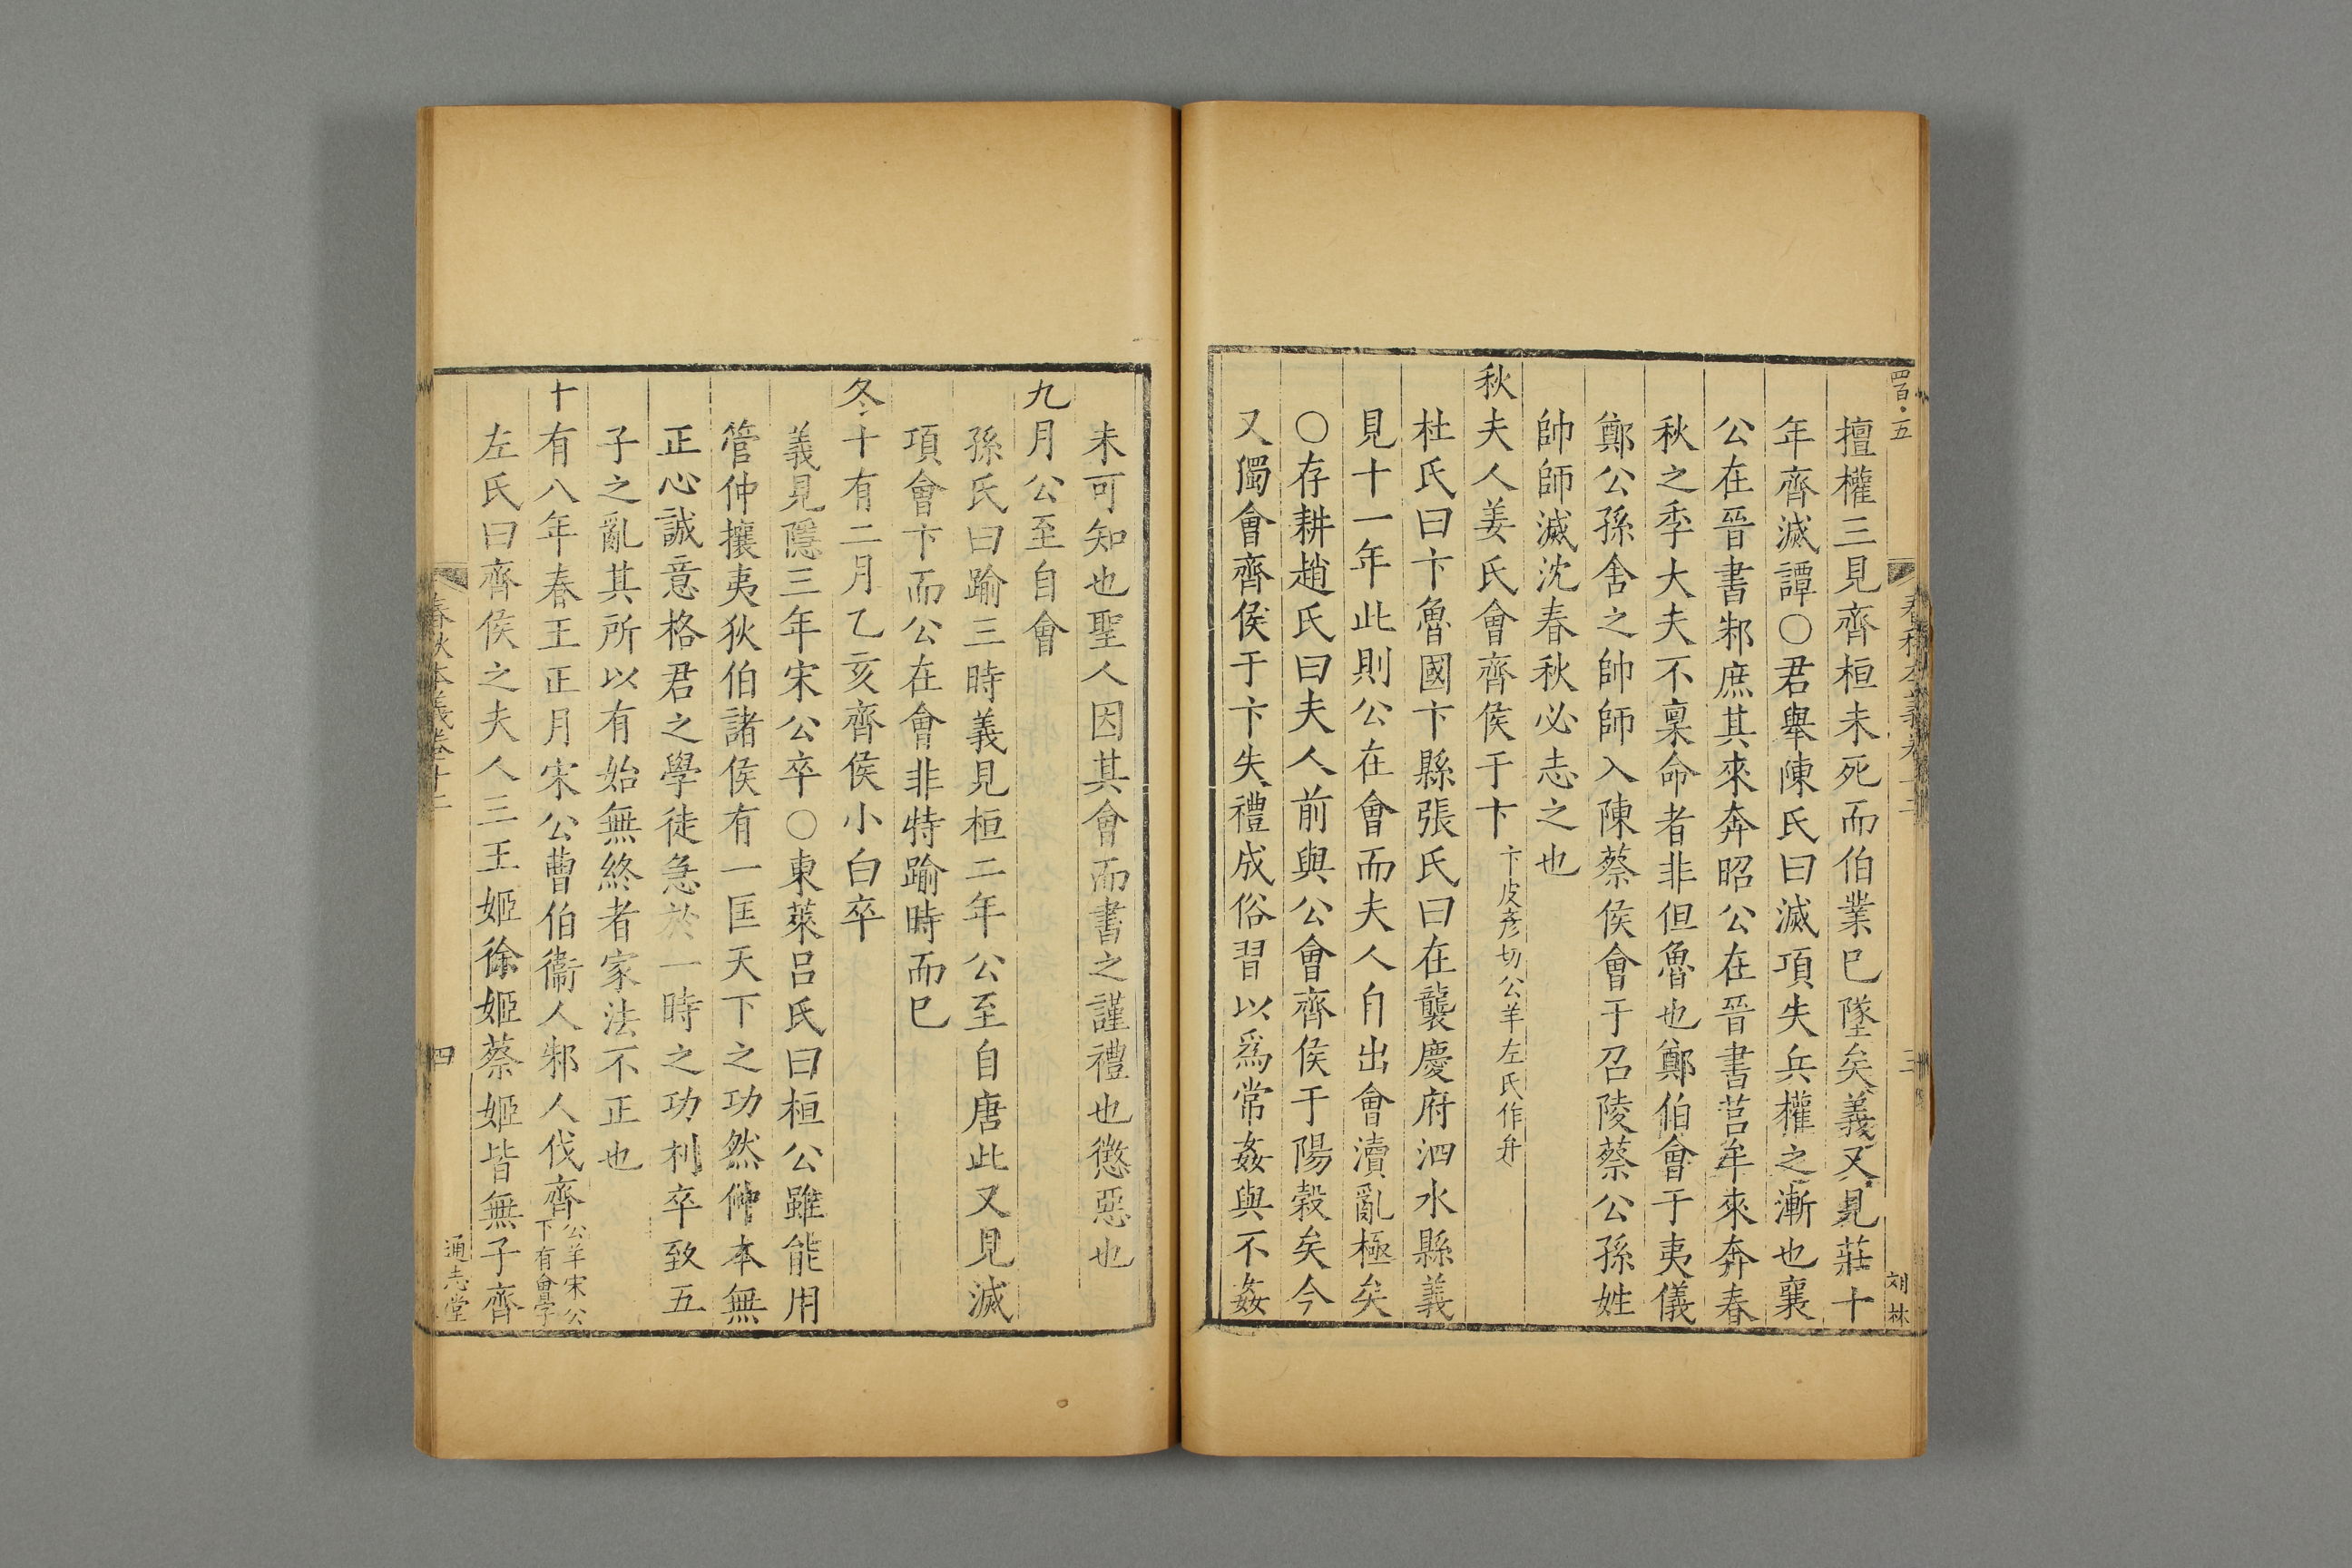 四百·五
擅權三見齊桓未死而伯業巳墜矣義又見莊十
年齊滅譚○君舉陳氏曰滅項失兵權之漸也襄
公在晉書邾庶其來奔昭公在晉書莒牟來奔春
秋之季大夫不稟命者非但魯也鄭伯會于夷儀
鄭公孫舍之帥師入陳蔡侯會于召陵蔡公孫姓
帥師滅沈春秋必志之也
秋夫人姜氏會齊侯于卞卞皮彥切公羊左氏作弁
杜氏曰卞魯國卞縣張氏曰在襲慶府泗水縣義
見十一年此則公在會而夫人自出會瀆亂極矣
○存耕趙氏曰夫人前與公會齊侯于陽穀矣今
又獨會齊侯于卞失禮成俗習以爲常姦與不姦
未可知也聖人因其會而書之謹禮也懲惡也
九月公至自會
孫氏曰踰三時義見桓二年公至自唐此又見滅
項會卞而公在會非特踰時而巳
冬十有二月乙亥齊侯小白卒
義見隱三年宋公卒○東萊呂氏曰桓公雖能用
管仲攘夷狄伯諸侯有一匡天下之功然仲本無
正心誠意格君之學徒急於一時之功利卒致五
子之亂其所以有始無終者家法不正也
十有八年春王正月宋公曹伯衞人邾人伐齊公羊宋公下有會字
左氏曰齊侯之夫人三王姬徐姬蔡姬皆無子齊
春秋本義卷十二
四
通志堂